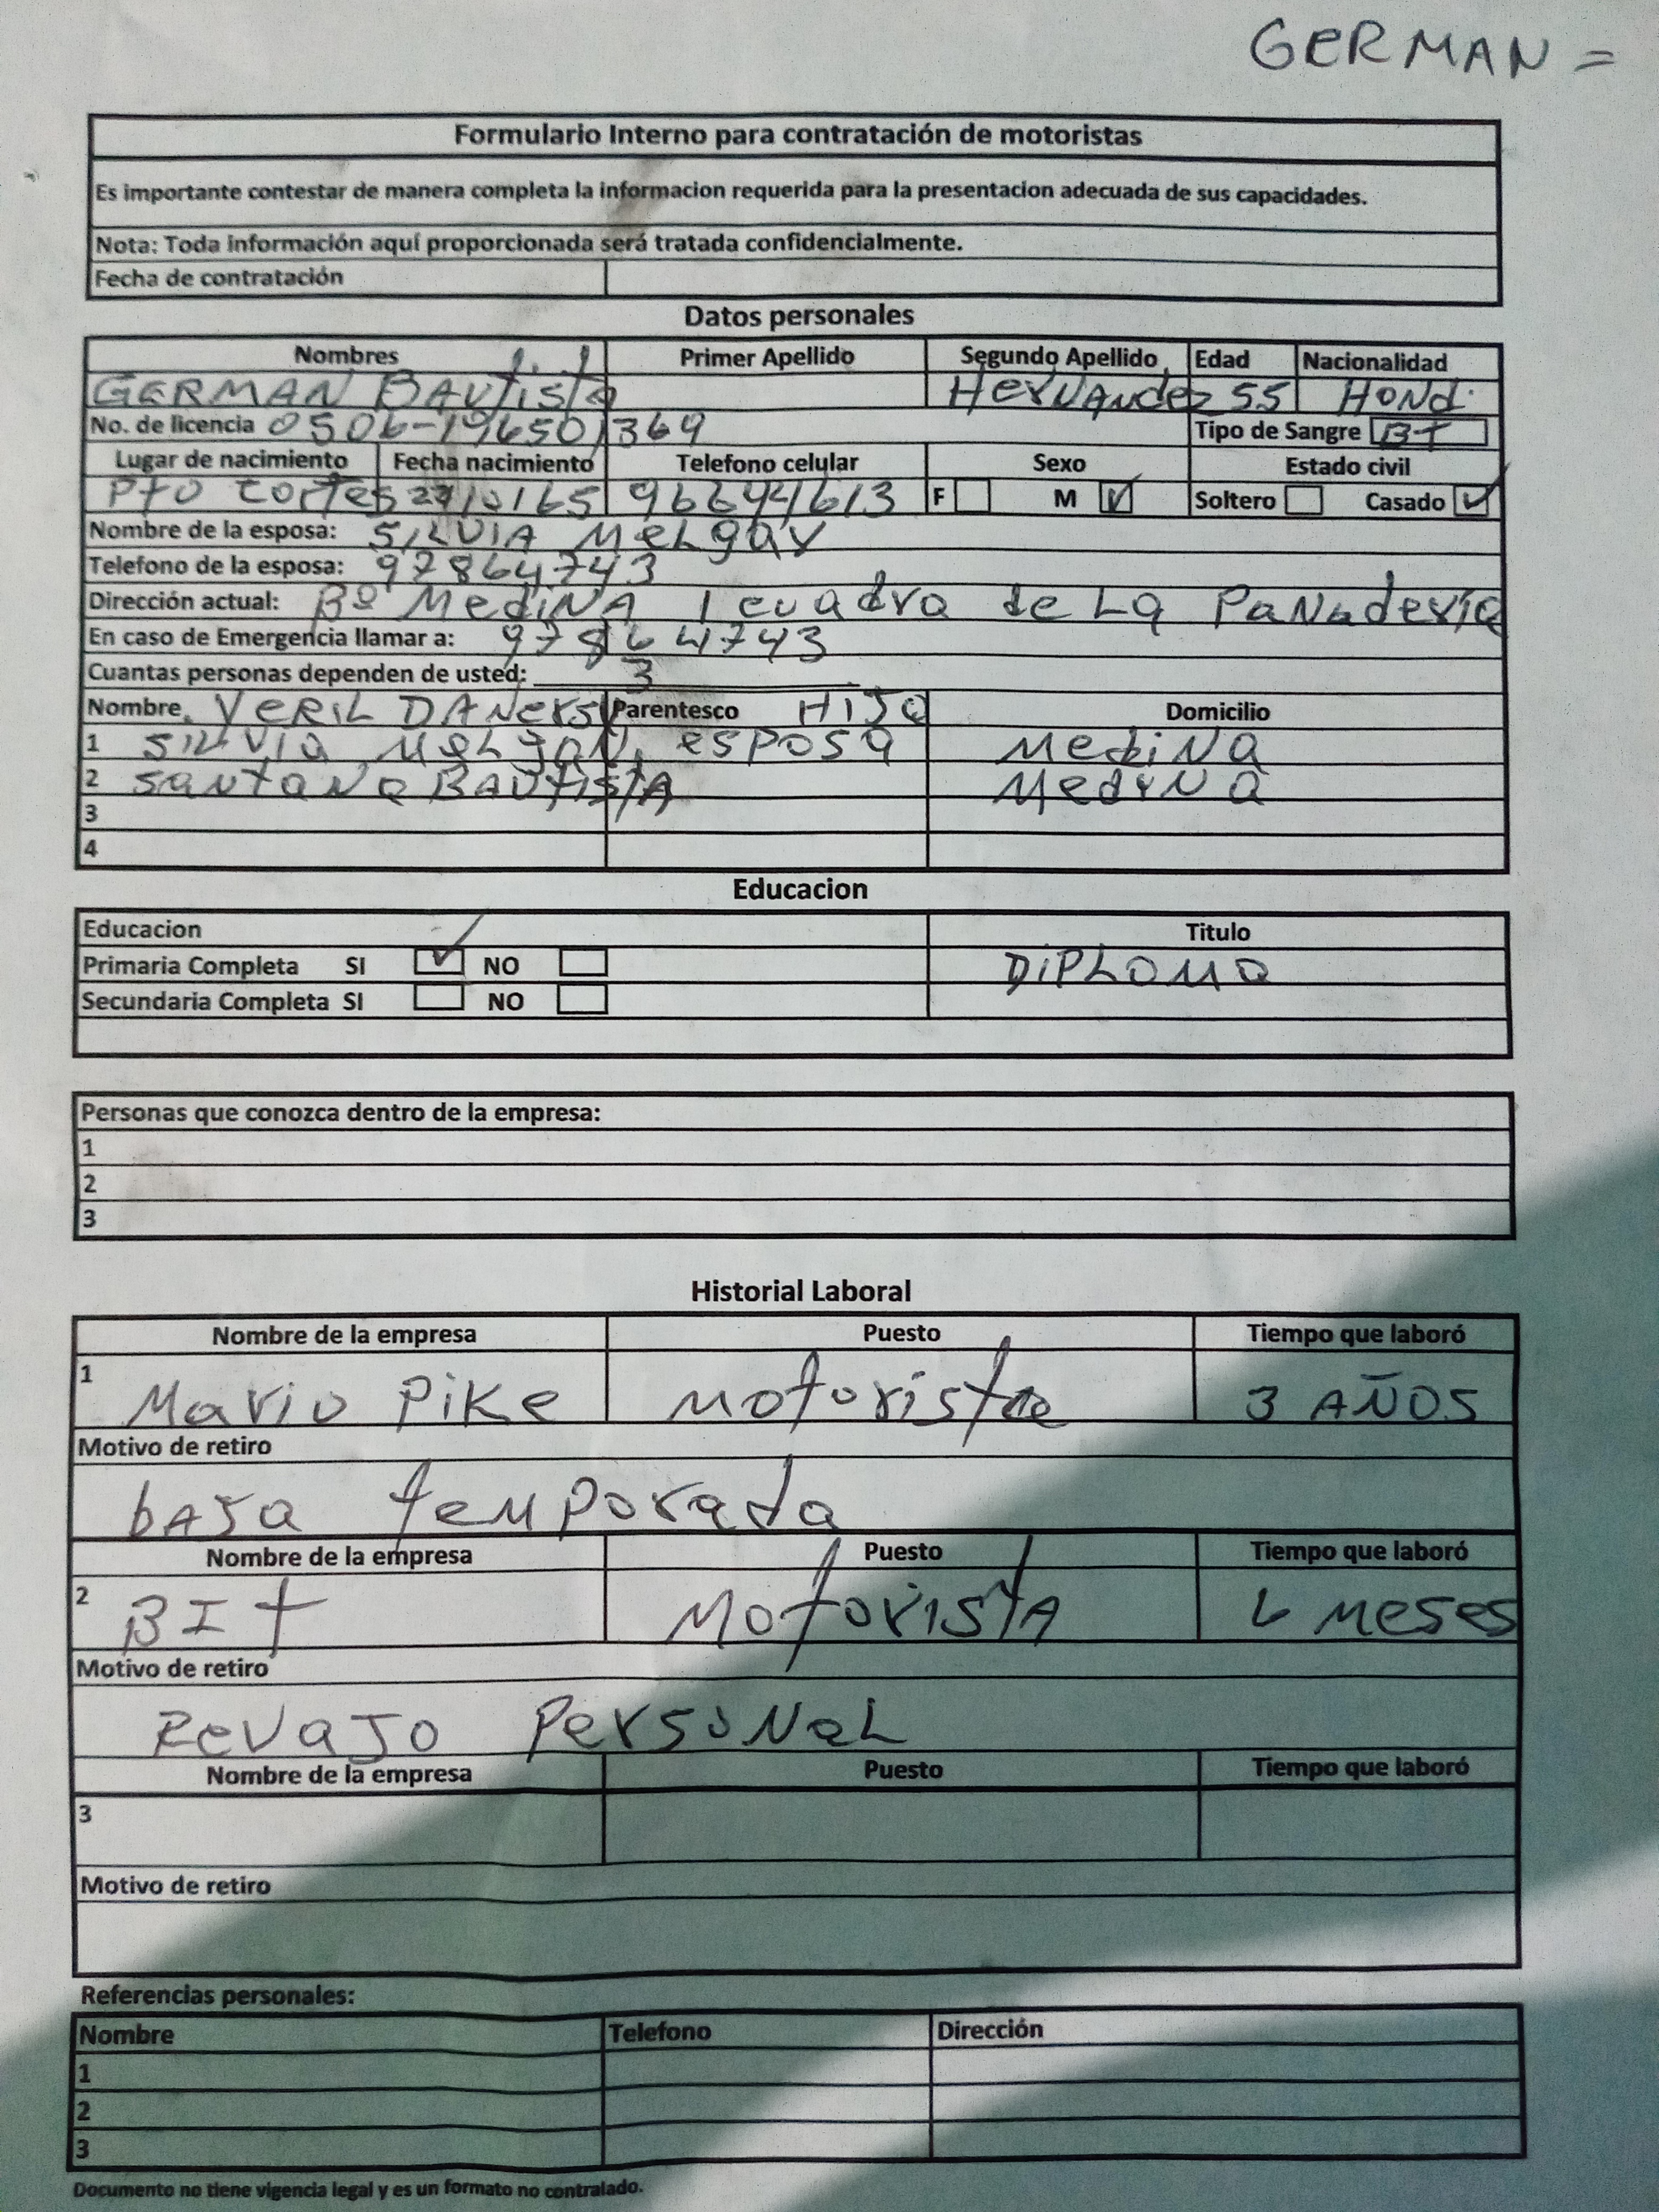 GERMAN =
Formulario Interno para contratación de motoristas
Es importante contestar de manera completa la informacion requerida para la presentacion adecuada de sus capacidades.
Nota: Toda información aquí proporcionada será tratada confidencialmente.
Fecha de contratación
Datos personales
Nombres Primer Apellido Segundo Apellido Edad Nacionalidad
GERMAN BAUtista HerNANdez 55 HONd.
No. de licencia 0506-196501369 Tipo de Sangre B+
Lugar de nacimiento Fecha nacimiento Telefono celular Sexo Estado civil
Pto Cortes 96644613 F M Soltero Casado
Nombre de la esposa: SILVIA MeLgar
Telefono de la esposa: 97864743
Dirección actual: Bº MediNA 1 cuadra de La PaNaderia
En caso de Emergencia llamar a: 97864743
Cuantas personas dependen de usted: 3
Nombre VERIL Parentesco HIJO Domicilio
1 SILVIA esposa MediNa
2 santaNa BAUtistA MediNa
3
4
Educacion
Educacion Titulo
Primaria Completa SI NO DiPLoMa
Secundaria Completa SI NO
Personas que conozca dentro de la empresa:
1
2
3
Historial Laboral
Nombre de la empresa Puesto Tiempo que laboró
1 Mario Pike Motorista 3 AÑOS
Motivo de retiro
bAJa temporada
Nombre de la empresa Puesto Tiempo que laboró
2 BIt MotoristA 6 Meses
Motivo de retiro
RevaJo PersoNaL
Nombre de la empresa Puesto Tiempo que laboró
3
Motivo de retiro
Referencias personales:
Nombre Telefono Dirección
1
2
3
Documento no tiene vigencia legal y es un formato no contralado.